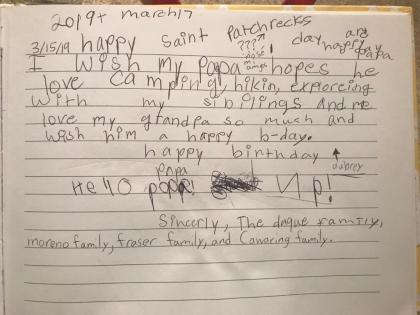 2019+ march 17
3/15/19 happy saint patchrecks day and
??? nose man happy papa day
I wish my Papa hopes he
love camping, hikin, exporcing
with my sibilings and me
love my grandpa so much and
wish him a happy b-day.
happy birthday ↑
papa aubrey
Hello Up!
Sincerly, The family,
moreno family, fraser family, and family.